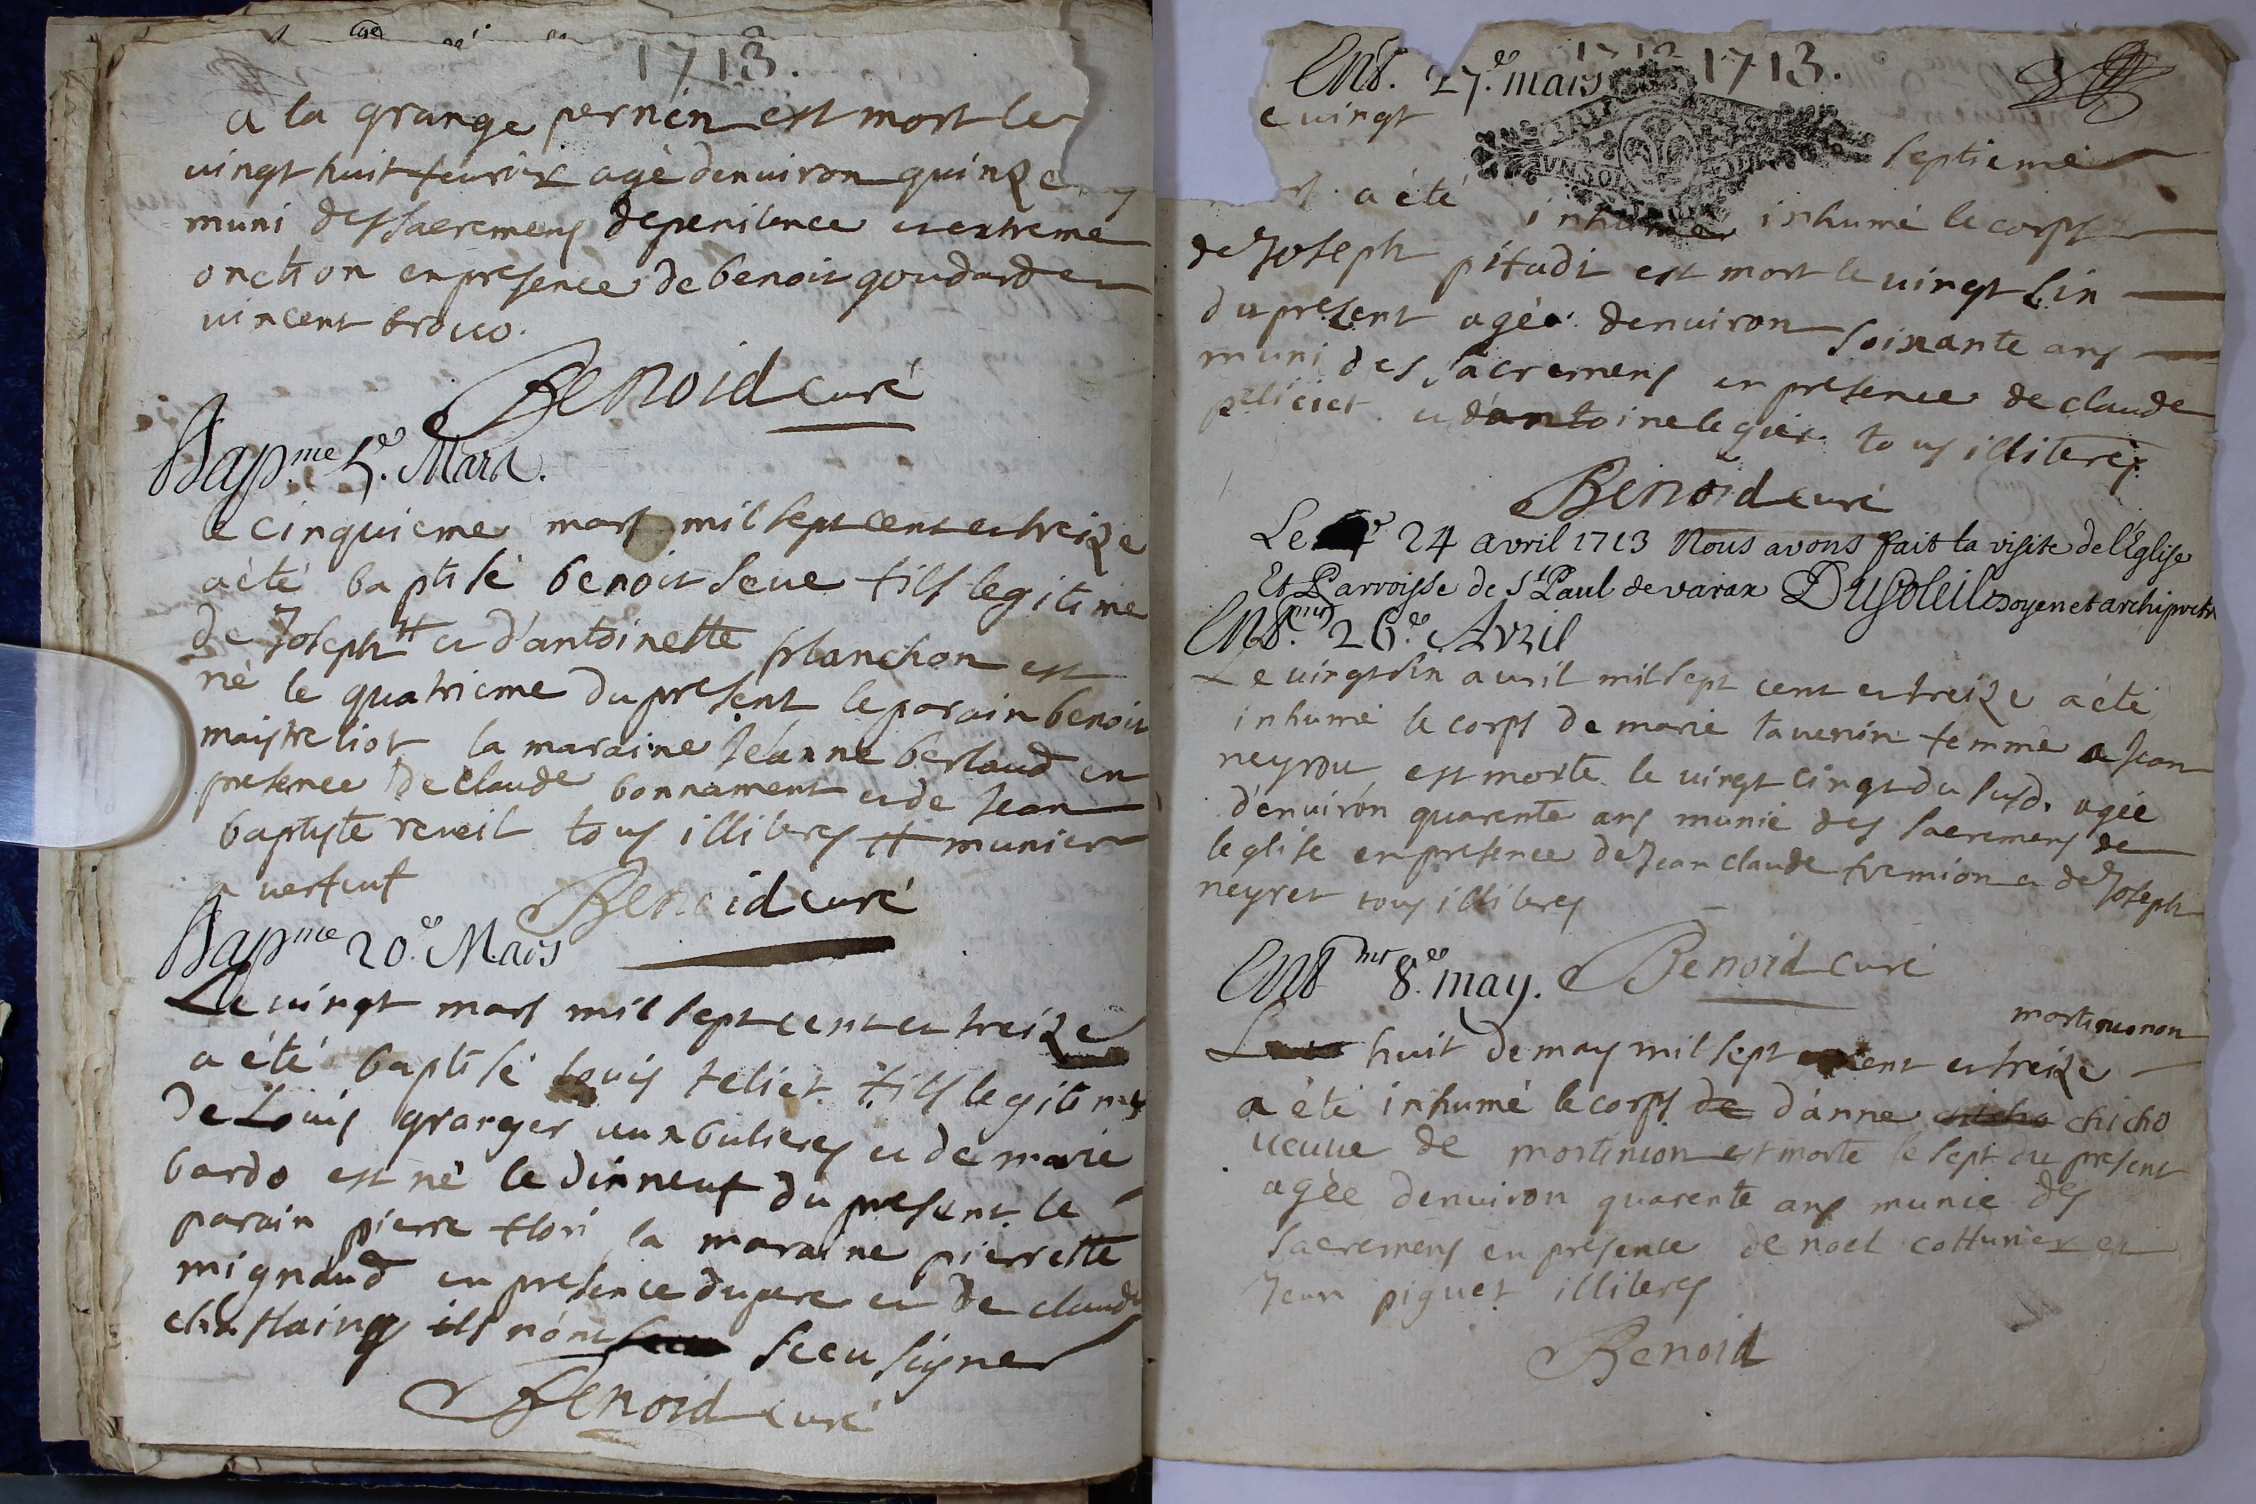 1713.
a la grange pernin est mort le
vingt huit feurier agé denuiron quinze
muni des sacremens de penitence et extreme
onction en presence de benoit goudard et
vincent brouo.
Benoid curé
Bap.me 5.e Mars.
le cinquieme mars mil sept cent et treize
a été baptisé benoit seue fils legitime
de Joseph # et d'antoinette planchon est
né le quatrieme du present le parain benoit
maistre liot la maraine Jeanne berlaud en
presence de claude bonnament et de Jean
baptiste reveil tous illiteres # munier
a vertfuf
Benoid curé
Bap.me 20.e Mars
Le vingt mars mil sept cent et treize
a été baptisé Louis telier fils legitime
de Louis granger aux bulieres et de marie
bardo est né le dixneuf du present le
parain pierre flori la maraine pierrette
mignaud en presence du pere et de claude
chastaing ils n'ont sceu signer
Benoid curé
1713.
Ent. 27.e mars
e vingt septieme
a été inhumer inhumé le corps
de Joseph pitadi est mort le vingt sin
du present agé denuiron soixante ans
muni des sacremens en presence de claude
peliciet et d'antoine legier tous illiteres
Benoid curé
Le 24 avril 1713 Nous avons fait la visite de l'Eglise
Et Parroisse de St Paul de varax Dusoleil Doyen et archipretre
Ent.mt 26.e Avril
Le vingt sin auril mil sept cent et treize a été
inhumé le corps de marie tauernin femme a Jean
neyrou est morte le vingt cinqt du susd. agée
d'enuiron quarente ans munie des sacremens de
leglise en presence de Jean claude fremion et de Joseph
neyret tous illiteres
Benoid curé
Ent.mt 8.e may.
martinonon
Le huit de may mil sept cent et treize
a été inhumé le corps de d'anne chicho
ueuue de martinion est morte le sept du present
agée denuiron quarente ans munie des
sacremens en presence de noel cotturier et
Jean piguet illiteres
Benoid